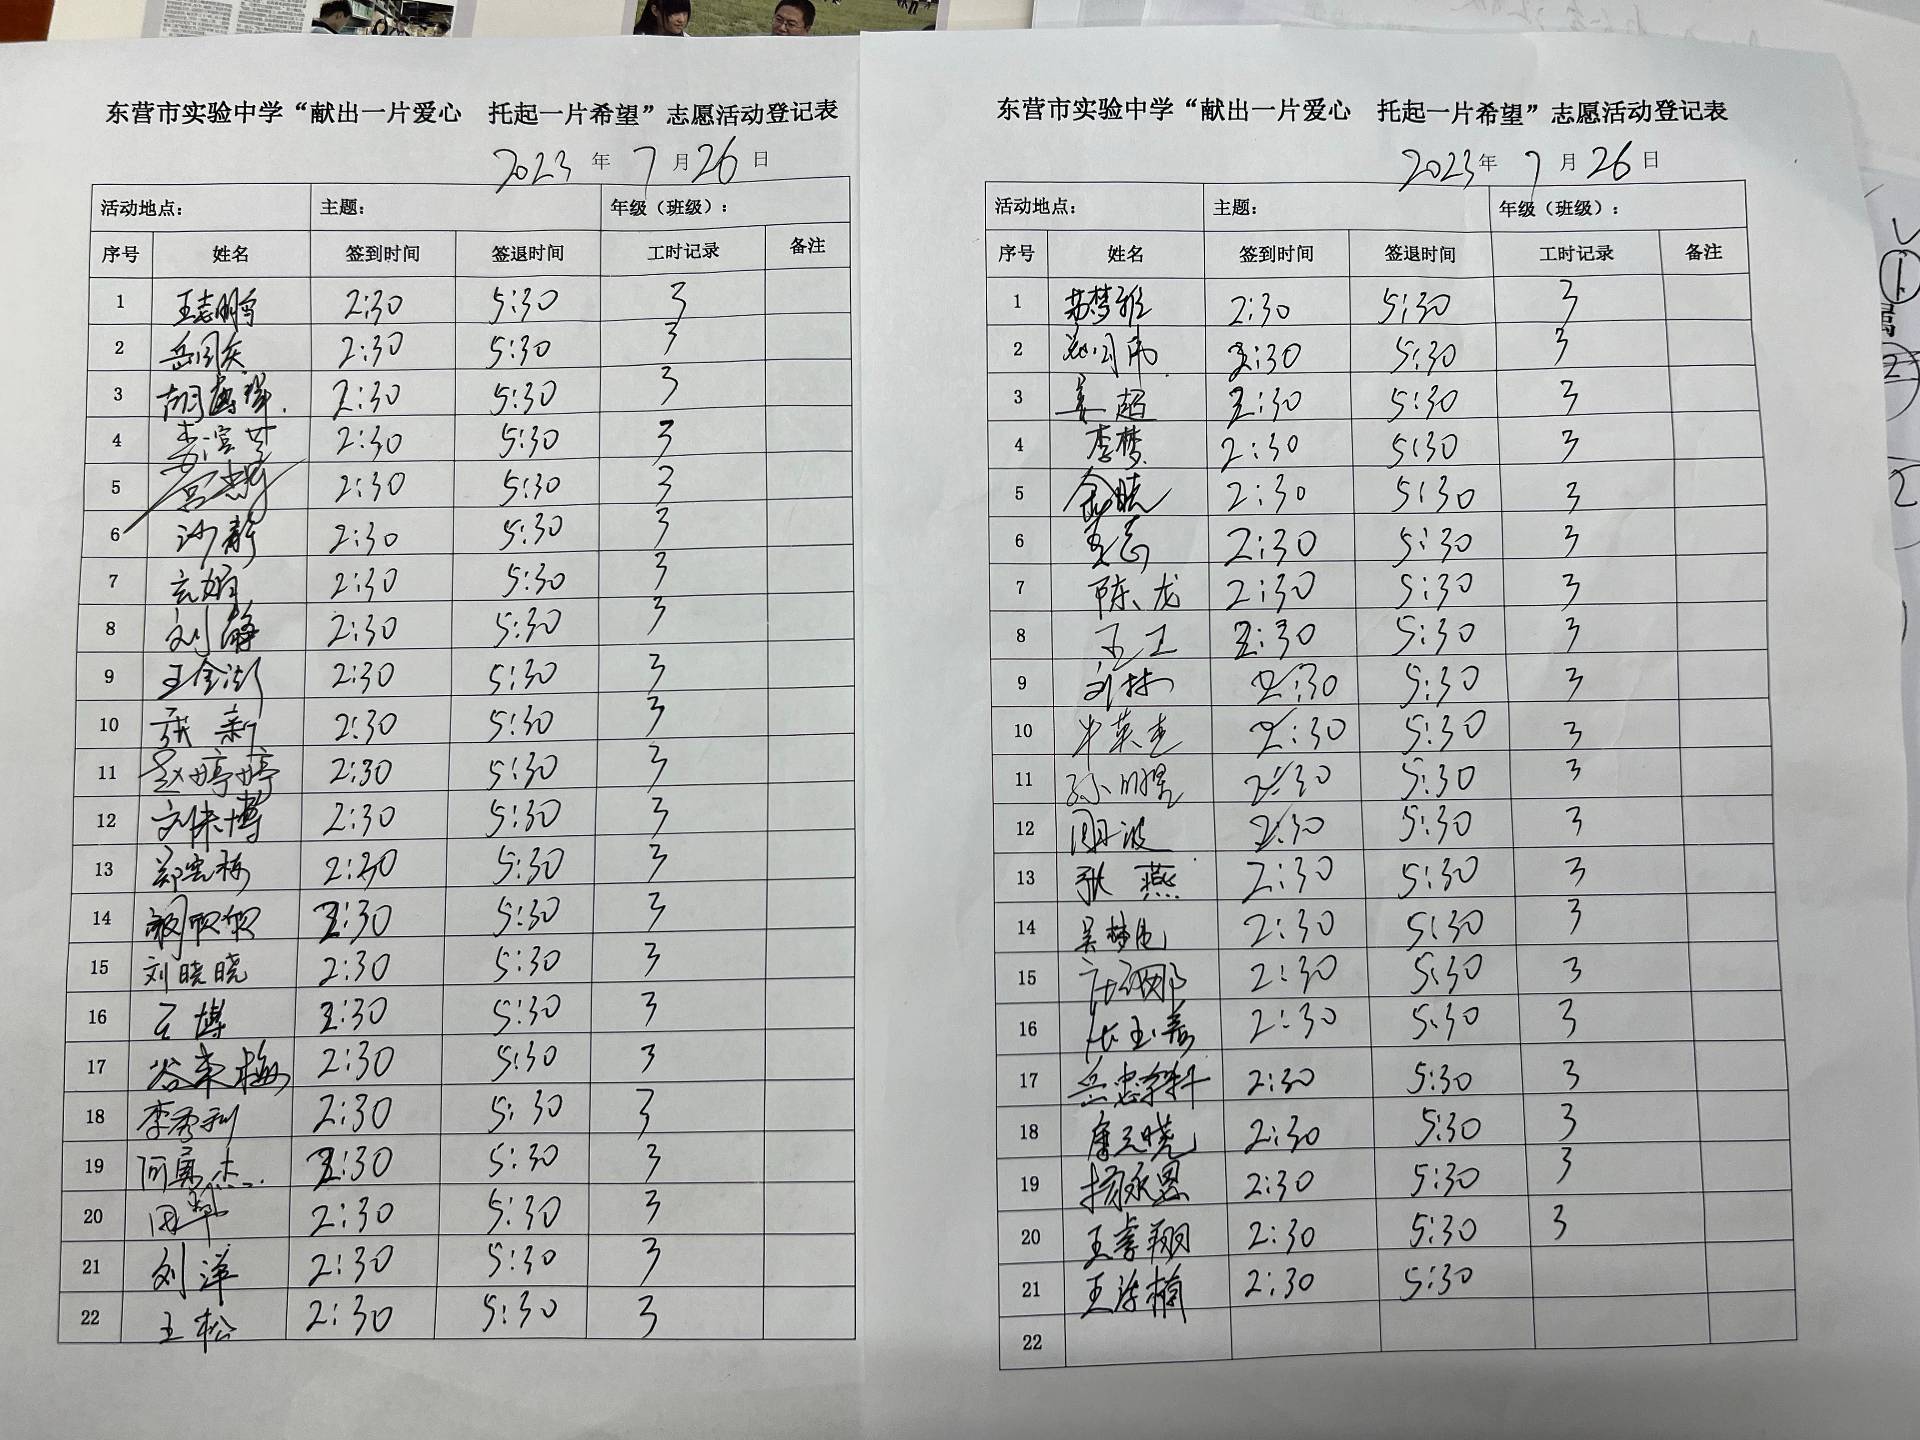 东营市实验中学“献出一片爱心 托起一片希望”志愿活动登记表
2023年 7月26日
活动地点： 主题： 年级（班级）：
序号 姓名 签到时间 签退时间 工时记录 备注
1 王志鹏 2:30 5:30 3
2 2:30 5:30 3
3 2:30 5:30 3
4 2:30 5:30 3
5 2:30 5:30 3
6 沙静 2:30 5:30 3
7 玄娟 2:30 5:30 3
8 刘静 2:30 5:30 3
9 王金湖 2:30 5:30 3
10 张新 2:30 5:30 3
11 赵婷婷 2:30 5:30 3
12 刘洪博 2:30 5:30 3
13 2:30 5:30 3
14 2:30 5:30 3
15 刘晓晓 2:30 5:30 3
16 王博 2:30 5:30 3
17 谷来梅 2:30 5:30 3
18 李秀利 2:30 5:30 3
19 2:30 5:30 3
20 2:30 5:30 3
21 刘洋 2:30 5:30 3
22 王松 2:30 5:30 3
东营市实验中学“献出一片爱心 托起一片希望”志愿活动登记表
2023年 7月26日
活动地点： 主题： 年级（班级）：
序号 姓名 签到时间 签退时间 工时记录 备注
1 苏梦雅 2:30 5:30 3
2 2:30 5:30 3
3 姜超 2:30 5:30 3
4 李梦 2:30 5:30 3
5 金晓 2:30 5:30 3
6 2:30 5:30 3
7 陈龙 2:30 5:30 3
8 2:30 5:30 3
9 刘林 2:30 5:30 3
10 牛英杰 2:30 5:30 3
11 孙明星 2:30 5:30 3
12 周波 2:30 5:30 3
13 张燕 2:30 5:30 3
14 2:30 5:30 3
15 2:30 5:30 3
16 2:30 5:30 3
17 2:30 5:30 3
18 2:30 5:30 3
19 杨永恩 2:30 5:30 3
20 王孝翔 2:30 5:30 3
21 2:30 5:30
22